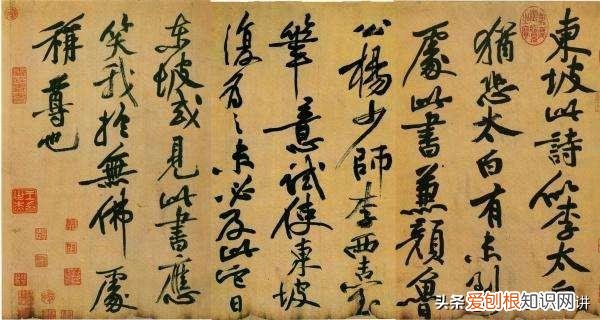 東坡此詩似李太白
猶恐太白有未到
處此書兼顏魯
公楊少師李西臺
筆意試使東坡
復為之未必及此它日
東坡或見此書應
笑我於無佛處
稱尊也
头条 @爱刨根知识网讲